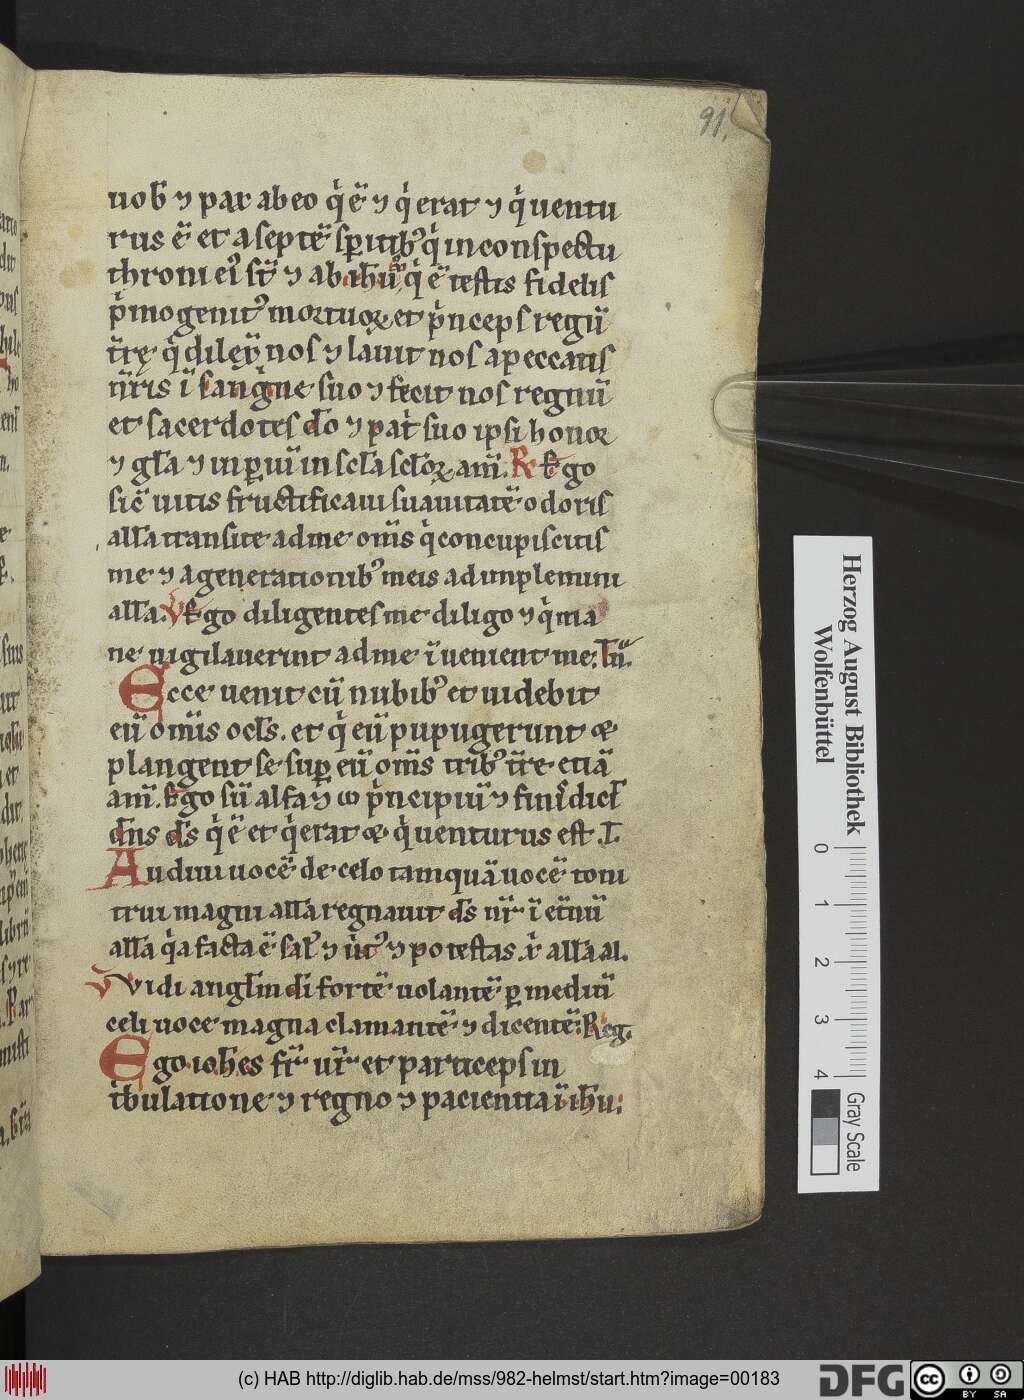 91.
uob̅ ⁊ pax ab eo q̇ ē ⁊ q̇ erat ⁊ q̇ uentu
rus ē et a septē sp̅ritib⁹ q̇ in conspectu
throni ei⁹ st̅ ⁊ ab ih̅u q̇ ē testis fidelis
ṗmogenit⁹ mortuoꝝ et ṗnceps regū
t̅rę q̇ dilex̅ nos ⁊ lauit nos a peccatis
n̅ris ī sanġne suo ⁊ fecit nos regnū
et sacerdotes d̅o ⁊ paṫ suo ipsi honor
⁊ gl̅a ⁊ inꝑiū in scl̅a scl̅oꝝ am̅. R Ego
sic̅ uitis fructificaui suauitatē odoris
all̅a transite ad me om̅s q̇ concupiscitis
me ⁊ a generationib⁹ meis adimplemini
all̅a. V Ego diligentes me diligo ⁊ q̇ ma
ne uigilauerint ad me īuenient me:
Ecce uenit cū nubib⁹ et uidebit
eū om̅is ocl̅s. et q̇ eū pupugerunt &
plangent se suꝑ eū om̅s trib⁹ t̅re etiā
am̅. Ego sū alfa ⁊ ω ṗncipiū ⁊ finis dic̅t
d̅ns d̅s q̇ ē et q̇ erat & q̇ uenturus est .I.
Audiui uocē de celo tamquā uocē toni
trui magni all̅a regnauit d̅s nr̅ ī et̅nū
all̅a q̇a facta ē sal⁹ ⁊ uit⁹ ⁊ potestas xp̅i all̅a al.
V Vidi angl̅m di̅ fortē uolantē ꝑ mediū
celi uoce magna clamantē ⁊ dicentē: Reg.
Ego ioh̅es fr̅ ur̅ et particeps in
tbulatione ⁊ regno ⁊ pacientia ī ih̅u:
Herzog August Bibliothek
Wolfenbüttel
0 1 2 3 4
Gray Scale
(c) HAB http://diglib.hab.de/mss/982-helmst/start.htm?image=00183
DFG
cc BY SA